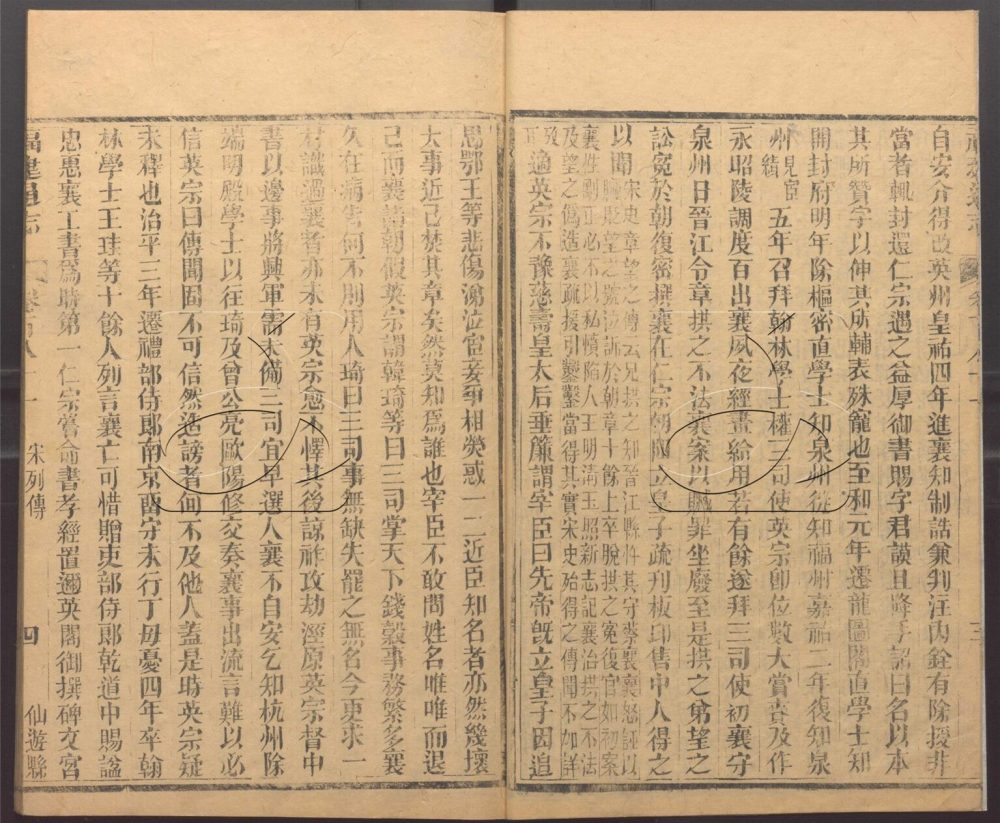 自安介得改英州皇祐四年進襄知制誥兼判流內銓有除授非
當者輒封還仁宗遇之益厚御書賜字君謨且降手詔曰名以本
其所贊字以伸其所輔表殊寵也至和元年遷龍圖閣直學士知
開封府明年除樞密直學士知泉州徙知福州嘉祐二年復知泉
州見宦績五年召拜翰林學士權三司使英宗即位數大賞賚及作
永昭陵調度百出襄夙夜經畫給用若有餘遂拜三司使初襄守
泉州日晉江令章拱之不法襄案以贓罪坐廢至是拱之弟望之
訟寃於朝復密撰襄在仁宗朝
立皇子疏刋板印售中人得之
以聞宋史章望之傳云兄拱之知晉江縣忤其守蔡襄襄怒誣以
贓貶望之號泣訴於朝章十餘上卒脫拱之寃復官如初案
襄性剛正必不以私憤陷人王明淸玉照新志記襄治拱之不法
及望之僞造襄疏援引鑿鑿當得其實宋史殆得之傳聞不如詳
可
適英宗不豫慈壽皇太后垂簾謂宰臣曰先帝旣立皇子因追
思鄂王等悲傷涕泣宦妾爭相熒惑一二近臣知名者亦然幾壞
大事近已焚其章矣然莫知爲誰也宰臣不敢問姓名唯唯而退
已而襄請朝假英宗謂韓琦等曰三司掌天下錢穀事務繁多襄
久在病吿何不別用人琦曰三司事無缺失罷之無名今更求一
材識過襄者亦未有英宗愈不懌其後諒祚攻劫涇原英宗督中
書以邊事將興軍需未備三司宜早選人襄不自安乞知杭州除
端明殿學士以往琦及曾公亮歐陽修交奏襄事出流言難以必
信英宗曰傳聞固不可信然造謗者何不及他人蓋是時英宗疑
未釋也治平三年遷禮部侍郎南京留守未行丁毋憂四年卒翰
林學士王珪等十餘人列言襄亡可惜贈吏部侍郎乾道中賜諡
忠惠襄工書爲時第一仁宗嘗命書孝經置邇英閣御撰碑文宮
福建通志
宋列傳
四
仙遊縣